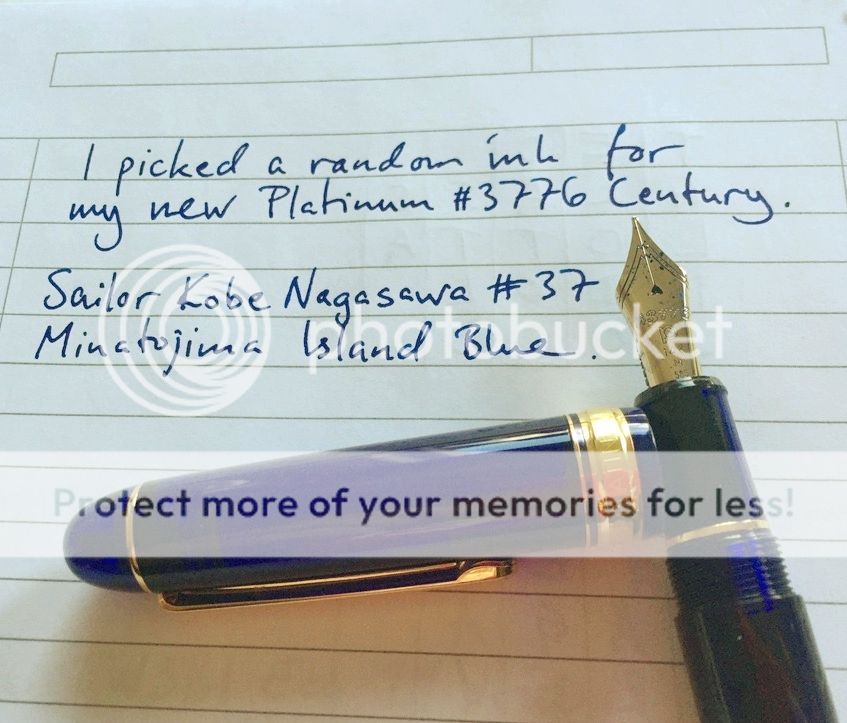 I picked a random ink for
my new Platinum #3776 Century.
Sailor Kobe Nagasawa #37
Minatojima Island Blue.
photobucket
Protect more of your memories for less!